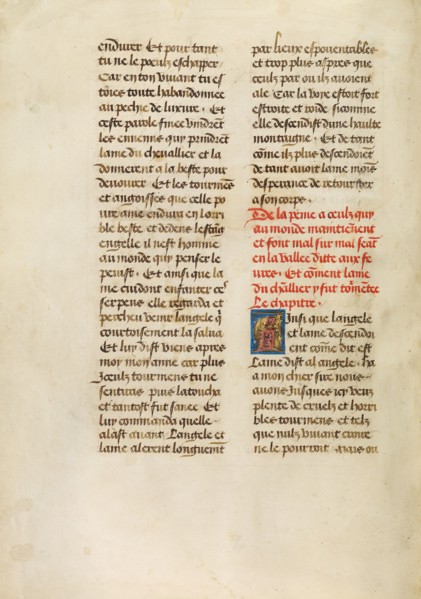 endurer Et pour tant
tu ne le poeulx eschapper
Car en ton viuant tu es
toute habandonnee
au pechie de luxure. Et
ceste parole finee vindrent
les ennemis quy prindrent
lame du cheuallier et la
donnerent a la beste pour
deuourer Et les tourmens
et angoisses que celle po
ure ame endura en lorri
ble beste et dedens
il nest homme
au monde quy penser le
peuist. Et ainsi que la
me cuidont enfanter ces
serpens elle regarda et
percheu venir langele quy
courtoisement la salua
Et luy dist viens apres
moy mon amie car plus
Iceulx tourmens tu ne
sentiras puis latoucha
et tantost fut sanee Et
luy commanda quelle
alast auant Langele et
lame alerent longuemt
par lieux espouentables
et trop plus aspres que
ceulx par ou ilz auoient
ale Car la voye estoit fort
estroite et roide si comme
elle descendist dune haulte
montaigne. Et de tant
come ilz plus descendoient
de tant auoit lame moins
desperance de retourner
a son corps.
De la peine a ceulx quy
au monde maintienent
et font mal sur mal seat
en la vallee ditte aux fe
ures. Et coment lame
du chllier y fut tormtee
Le chapitre.
Ainsi que langele
et lame descendoi
ent come dit est
Lame dist al angele. ha
a mon chier sire nous
auons Jusques icy veu
plente de cruelz et horri
bles tourmens et telz
que nulz viuant croire
ne le pourroit